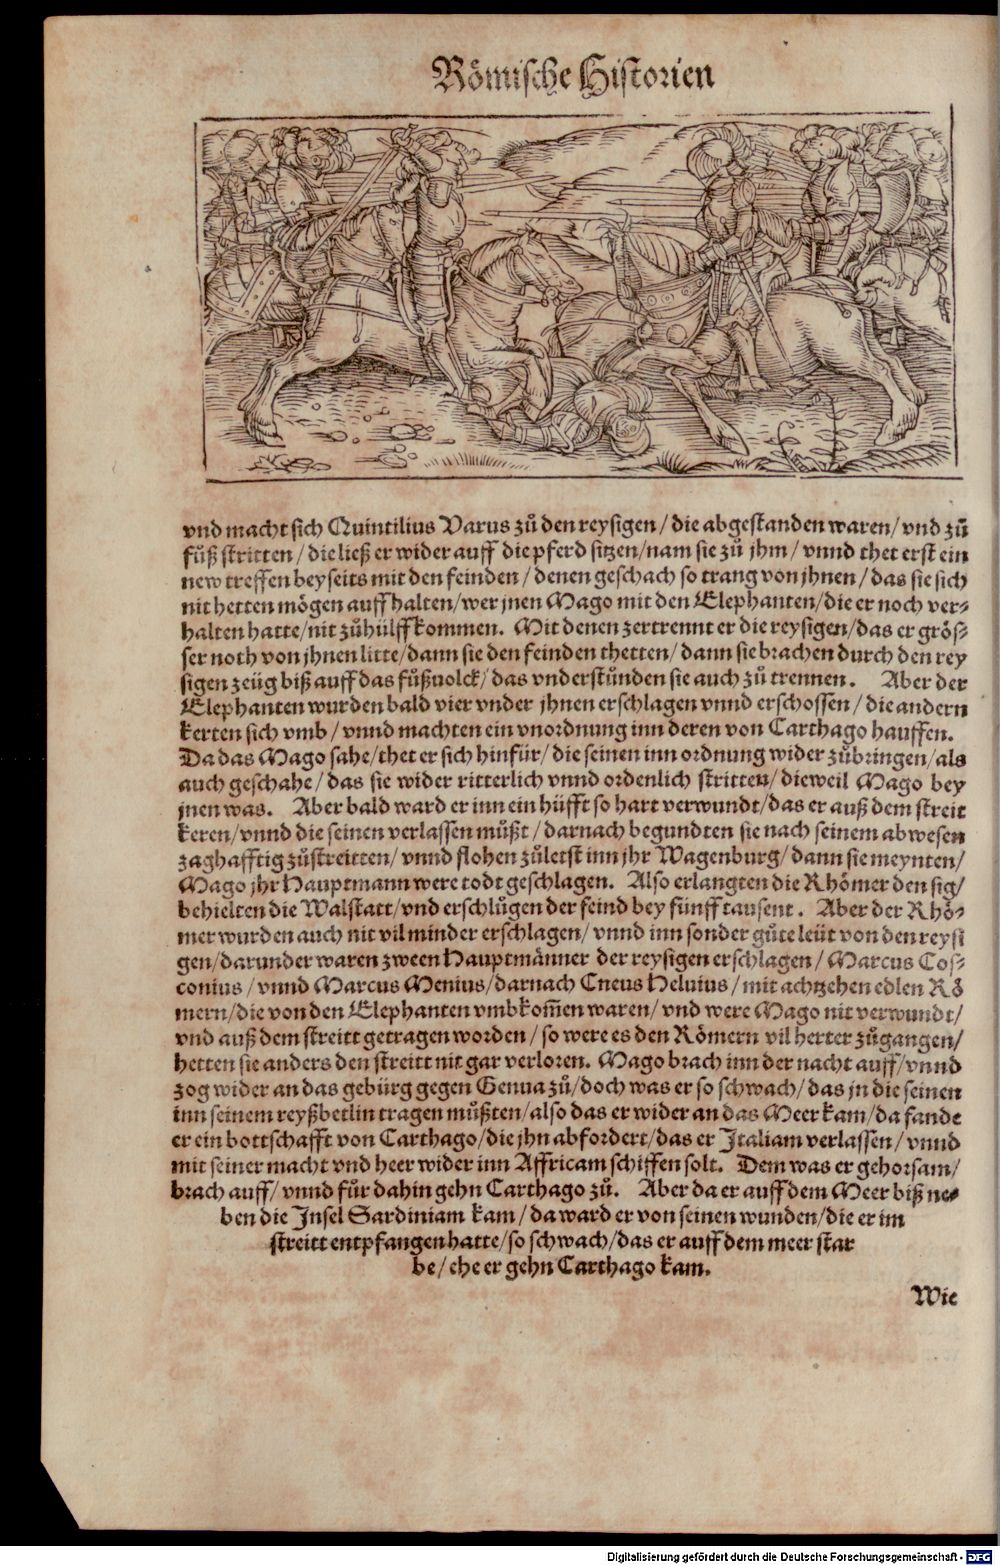 Römische Historien
vnd macht sich Quintilius Varus zů den reysigen / die abgestanden waren / vnd zů
fůß stritten / die ließ er wider auff die pferd sitzen / nam sie zů jhm / vnnd thet erst ein
new treffen beyseits mit den feinden / denen geschach so trang von jhnen / das sie sich
nit hetten mögen auffhalten / wer jnen Mago mit den Elephanten / die er noch ver⸗
halten hatte / nit zůhülff kommen. Mit denen zertrennt er die reysigen / das er grös⸗
ser noth von jhnen litte / dann sie den feinden thetten / dann sie brachen durch den rey
sigen zeüg biß auff das fůßuolck / das vnderstůnden sie auch zů trennen. Aber der
Elephanten wurden bald vier vnder jhnen erschlagen vnnd erschossen / die andern
kerten sich vmb / vnnd machten ein vnordnung inn deren von Carthago hauffen.
Da das Mago sahe / thet er sich hinfür / die seinen inn ordnung wider zůbringen / als
auch geschahe / das sie wider ritterlich vnnd ordenlich stritten / dieweil Mago bey
jnen was. Aber bald ward er inn ein hüfft so hart verwundt / das er auß dem streit
keren / vnnd die seinen verlassen můßt / darnach begundten sie nach seinem abwesen
zaghafftig zůstreitten / vnnd flohen zůletst inn jhr Wagenburg / dann sie meynten /
Mago jhr Hauptmann were todt geschlagen. Also erlangten die Rhömer den sig /
behielten die Walstatt / vnd erschlůgen der feind bey fünff tausent. Aber der Rhö⸗
mer wurden auch nit vil minder erschlagen / vnnd inn sonder gůte leüt von den reysi
gen / darunder waren zween Hauptmänner der reysigen erschlagen / Marcus Cos⸗
conius / vnnd Marcus Menius / darnach Cneus Heluius / mit achtzehen edlen Rö
mern / die von den Elephanten vmbkom̃en waren / vnd were Mago nit verwundt /
vnd auß dem streitt getragen worden / so were es den Römern vil herter zůgangen /
hetten sie anders den streitt nit gar verloren. Mago brach inn der nacht auff / vnnd
zog wider an das gebürg gegen Genua zů / doch was er so schwach / das jn die seinen
inn seinem reyßbetlin tragen můßten / also das er wider an das Meer kam / da fande
er ein bottschafft von Carthago / die jhn abfordert / das er Italiam verlassen / vnnd
mit seiner macht vnd heer wider inn Affricam schiffen solt. Dem was er gehorsam /
brach auff / vnnd fůr dahin gehn Carthago zů. Aber da er auff dem Meer biß ne⸗
ben die Insel Sardiniam kam / da ward er von seinen wunden / die er im
streitt entpfangen hatte / so schwach / das er auff dem meer star
be / ehe er gehn Carthago kam.
Wie
Digitalisierung gefördert durch die Deutsche Forschungsgemeinschaft - DFG